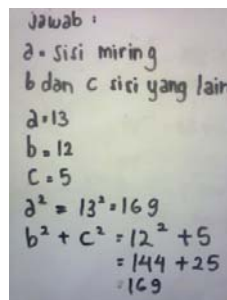 Jawab :
a = sisi miring
b dan c sisi yang lain
a = 13
b = 12
c = 5
a² = 13² = 169
b² + c² = 12² + 5
= 144 + 25
= 169